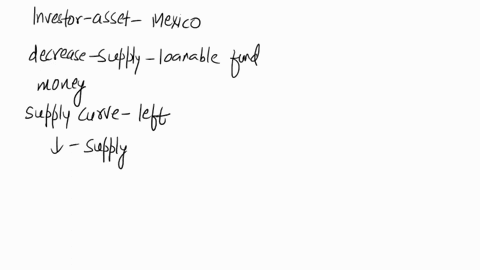 Investor-asset- Mexico
decrease-supply-loanable fund
money
supply curve- left
↓ - supply